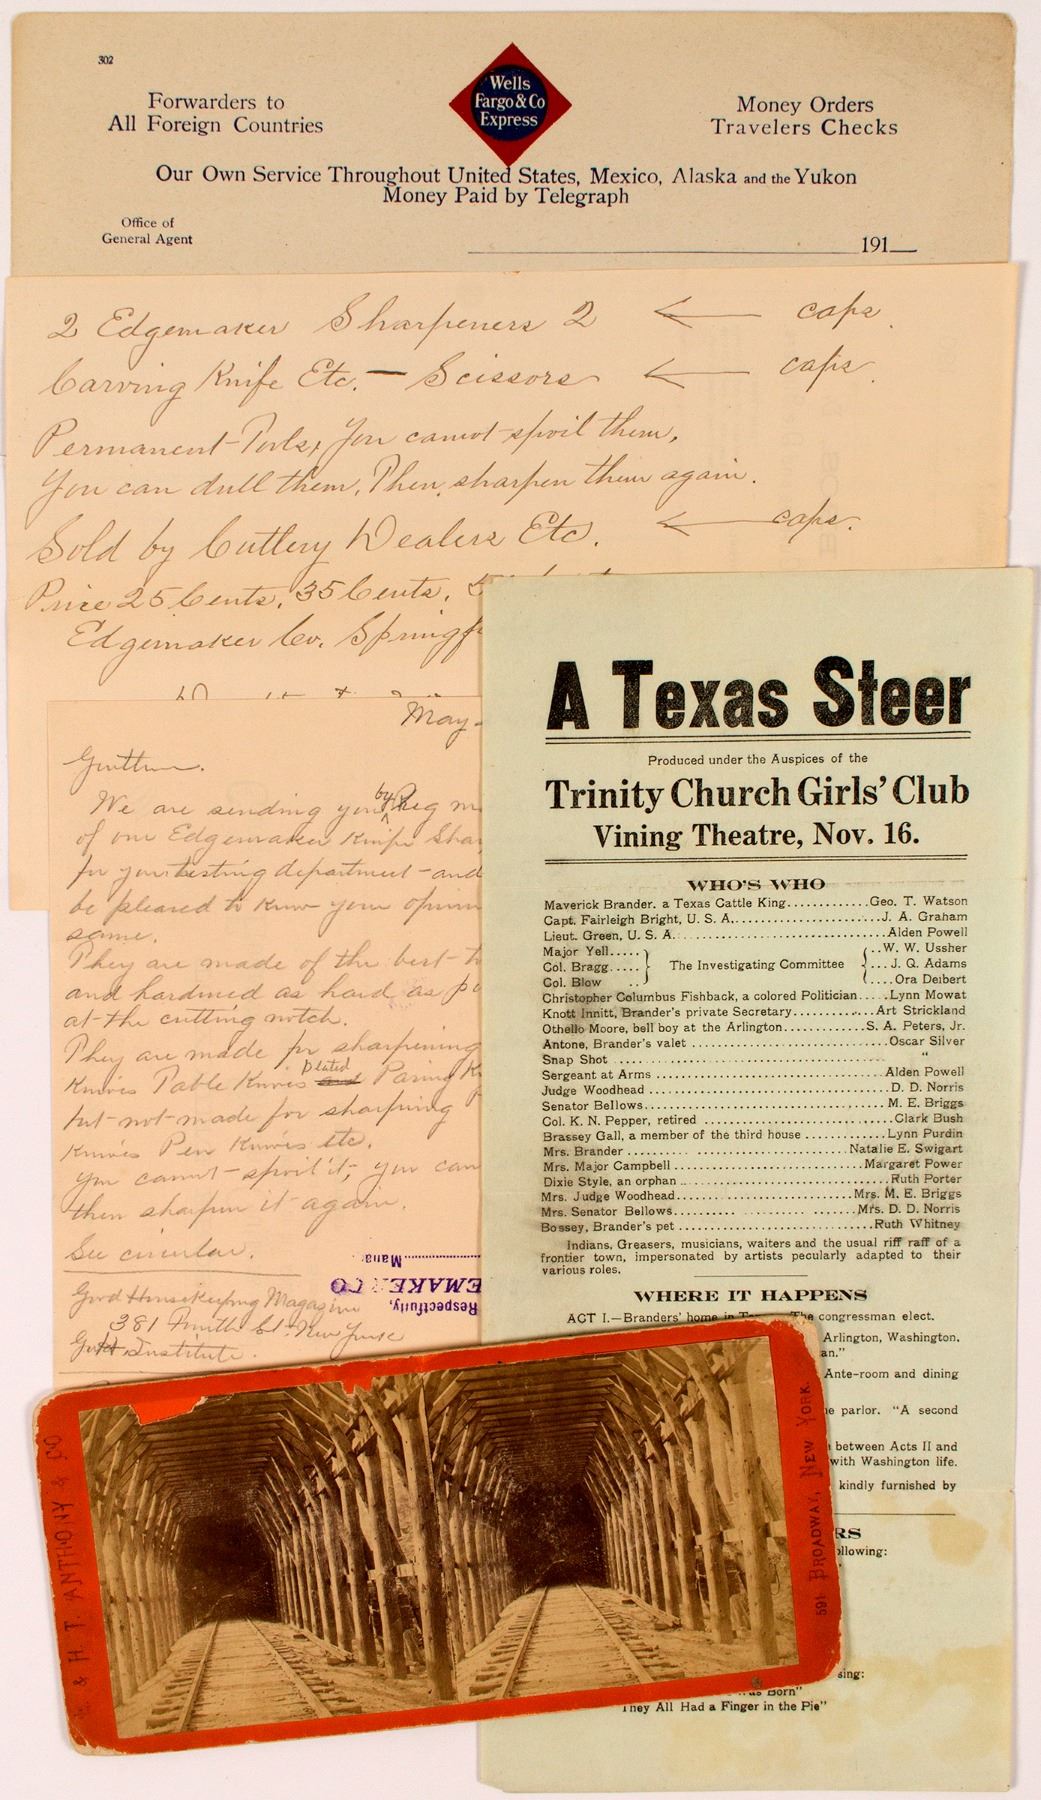 302
Forwarders to
All Foreign Countries
Wells
Fargo & Co
Express
Money Orders
Travelers Checks
Our Own Service Throughout United States, Mexico, Alaska and the Yukon
Money Paid by Telegraph
Office of
General Agent
191
2 Edgemaker Sharpeners 2 ← caps.
Carving Knife Etc. — Scissors ← caps.
Permanent Tools, You cannot spoil them,
You can dull them, Then sharpen them again.
Sold by Cutlery Dealers Etc. ← caps.
Price 25 Cents, 35 Cents,
Edgemaker Co. Springf
May
Gentlemen.
We are sending you by Reg
of our Edgemaker Knife Shar
for your testing department - and
be pleased to know your opinion
same.
They are made of the best
and hardened as hard as
at the cutting notch.
They are made for sharpening
Knives Table Knives plated Paring
but not made for sharping
Knives Pen Knives etc.
You cannot spoil it, you can
then sharpen it again.
See circular.
Respectfully,
EMAKER CO
Mana
Good Housekeeping Magazine
381 Fourth St. New York
Institute.
A Texas Steer
Produced under the Auspices of the
Trinity Church Girls' Club
Vining Theatre, Nov. 16.
WHO'S WHO
Maverick Brander. a Texas Cattle King............Geo. T. Watson
Capt. Fairleigh Bright, U. S. A......................J. A. Graham
Lieut. Green, U. S. A................................Alden Powell
Major Yell..... W. W. Ussher
Col. Bragg..... The Investigating Committee ....J. Q. Adams
Col. Blow .. ....Ora Deibert
Christopher Columbus Fishback, a colored Politician.....Lynn Mowat
Knott Innitt, Brander's private Secretary............Art Strickland
Othello Moore, bell boy at the Arlington............S. A. Peters, Jr.
Antone, Brander's valet ............................Oscar Silver
Snap Shot .......................................... "
Sergeant at Arms ..................................Alden Powell
Judge Woodhead ....................................D. D. Norris
Senator Bellows....................................M. E. Briggs
Col. K. N. Pepper, retired ...........................Clark Bush
Brassey Gall, a member of the third house ...........Lynn Purdin
Mrs. Brander ..................................Natalie E. Swigart
Mrs. Major Campbell ............................Margaret Power
Dixie Style, an orphan ..............................Ruth Porter
Mrs. Judge Woodhead..........................Mrs. M. E. Briggs
Mrs. Senator Bellows..........................Mrs. D. D. Norris
Bossey, Brander's pet .............................Ruth Whitney
Indians, Greasers, musicians, waiters and the usual riff raff of a
frontier town, impersonated by artists pecularly adapted to their
various roles.
WHERE IT HAPPENS
ACT I.—Branders' home in The congressman elect.
Arlington, Washington,
an."
Ante-room and dining
e parlor. "A second
between Acts II and
with Washington life.
kindly furnished by
RS
ollowing:
sing:
Was Born"
They All Had a Finger in the Pie"
& H. T. ANTHONY & CO
591 BROADWAY, NEW YORK.